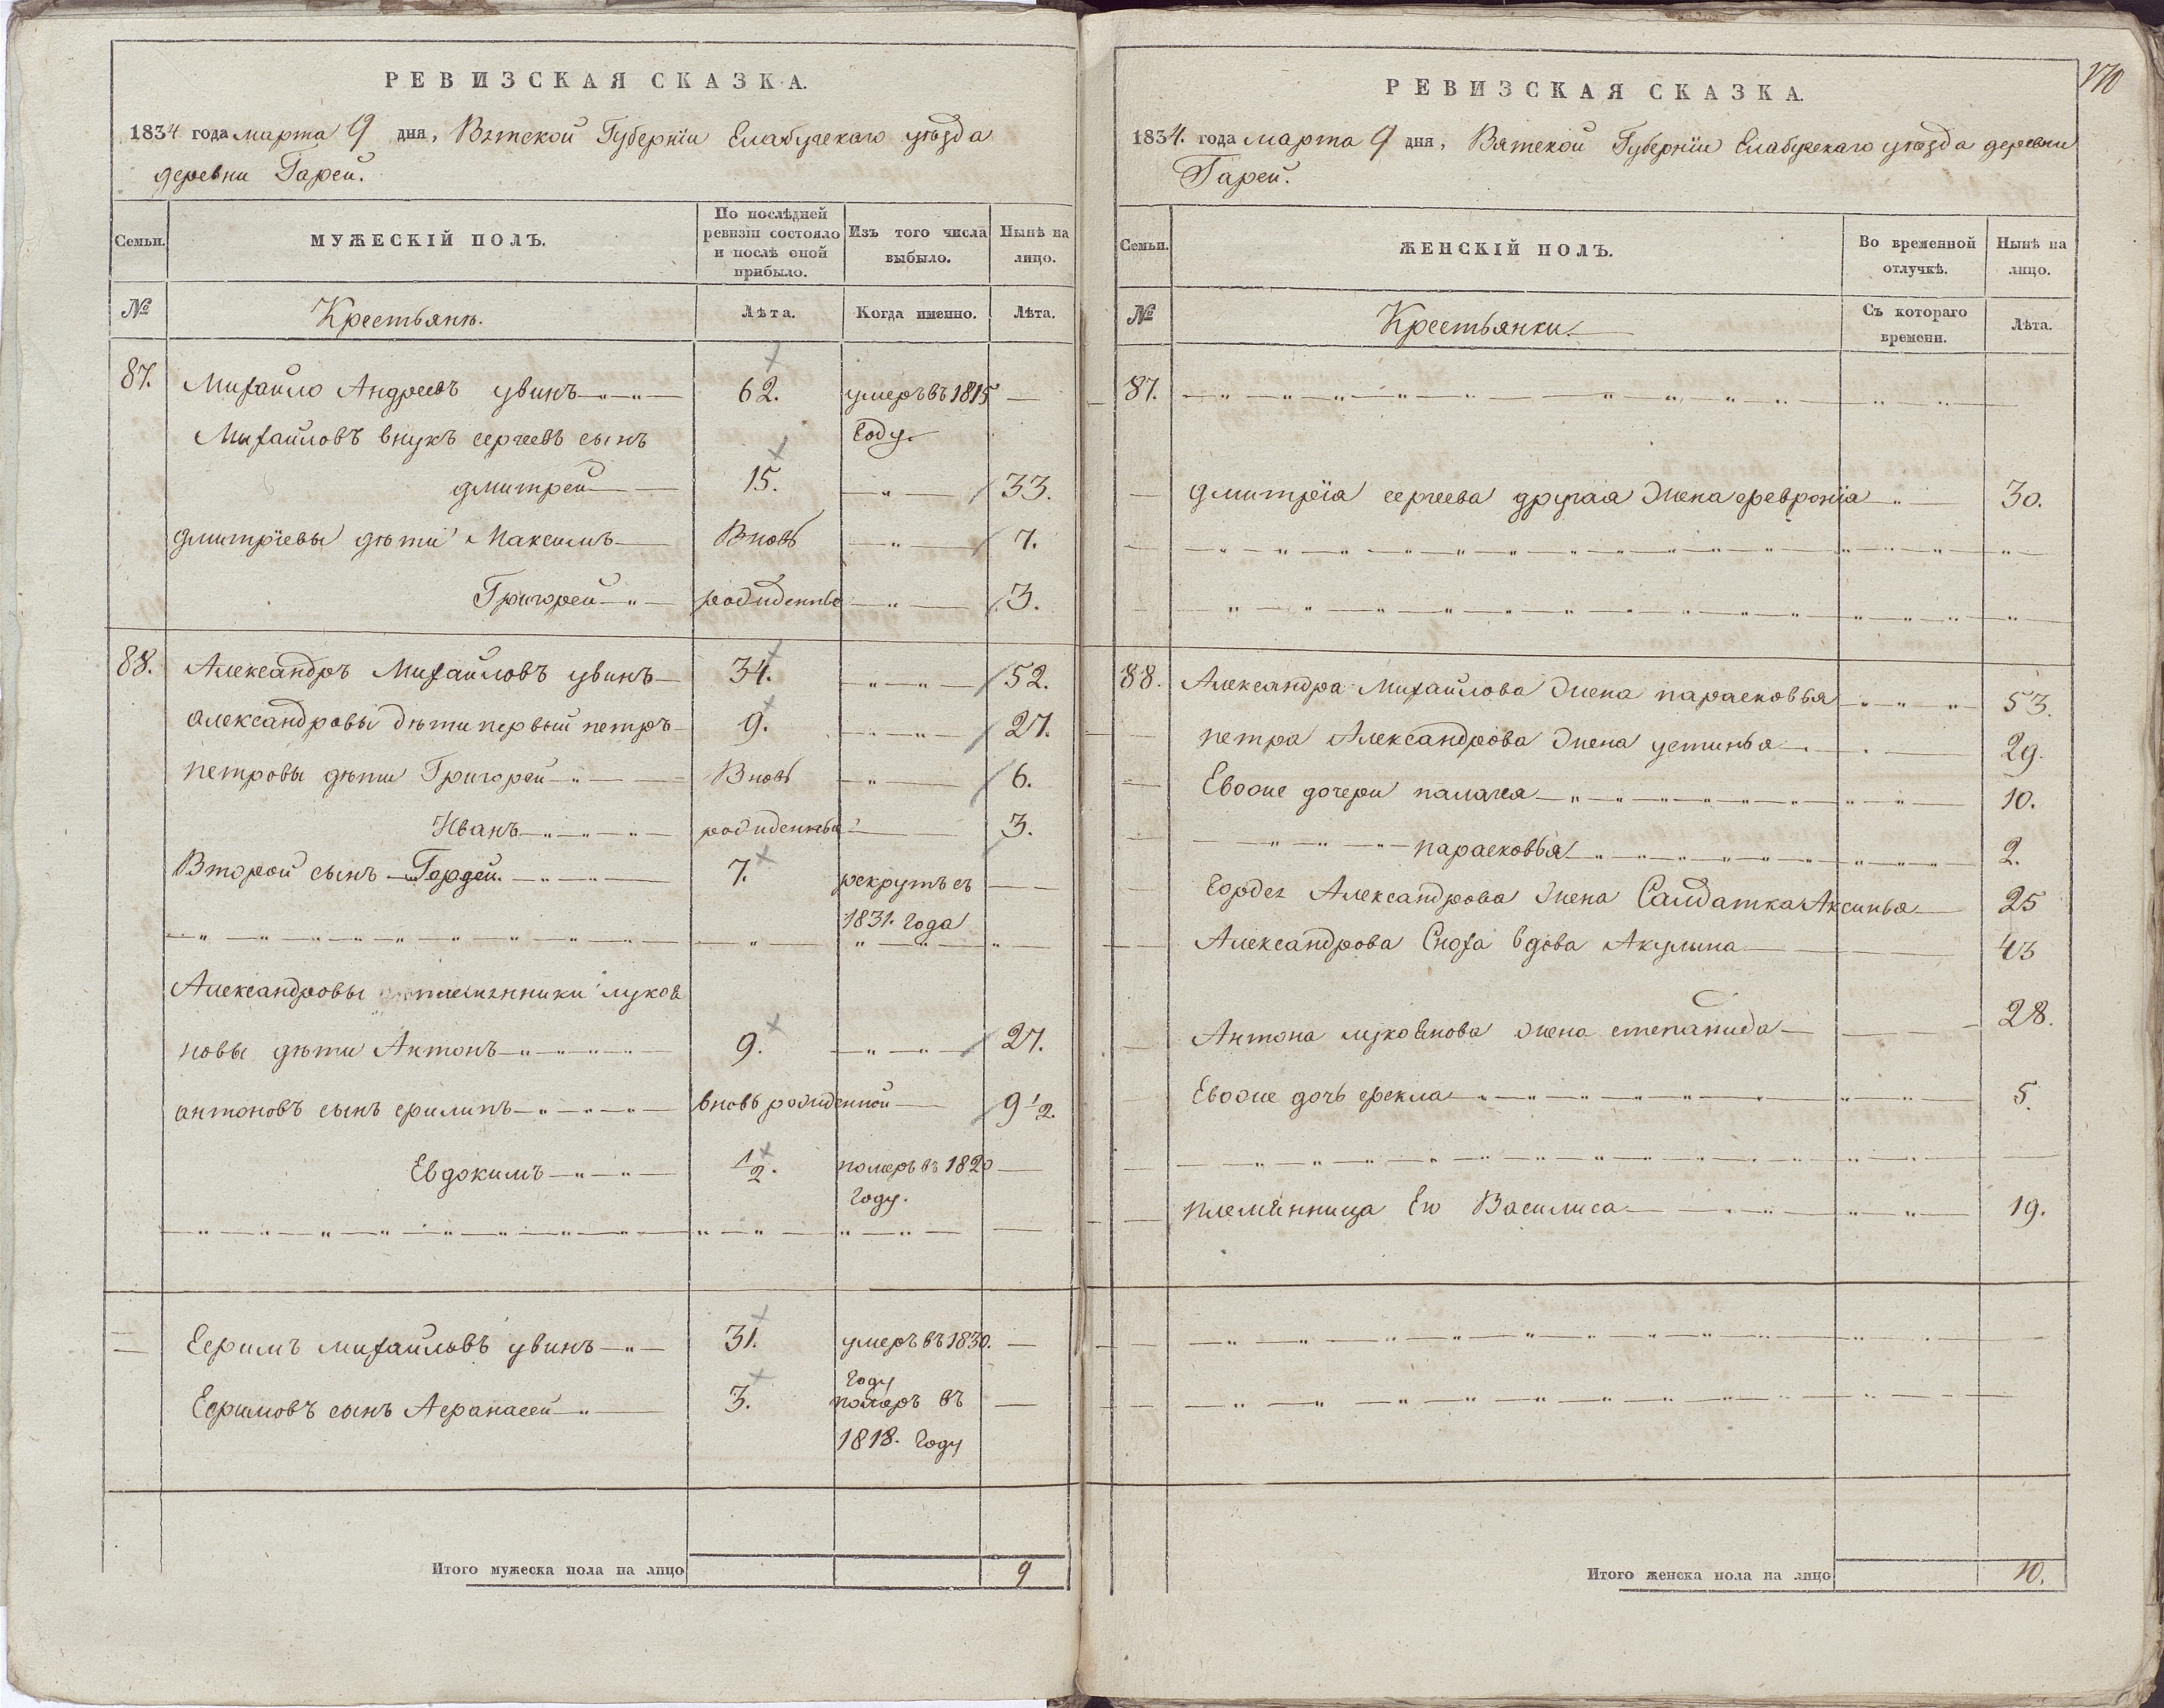 РЕВИЗСКАЯ СКАЗКА.
1834 года марта 9 дня, Вятской Губернїи Елабугскаго уѣзда
деревни Гарей.
Семьи.
МУЖЕСКІЙ ПОЛЪ.
По послѣдней ревизіи состояло и послѣ оной прибыло.
Изъ того числа выбыло.
Нынѣ на лицо.
№
Крестьянѣ.
Лѣта.
Когда именно.
Лѣта.
87. Михайло Андреевъ увинъ 62. умеръ въ 1815
Михайловъ внукъ сергеевъ сынъ году
дмитрей 15. 33.
дмитрїевы дѣти Максимъ Вновь 7.
Григорей рожденные 3.
88. Александръ Михайловъ увинъ 34. 52.
александровы дѣти первый петръ 9. 27.
петровы дѣти Григорей Вновь 6.
Иванъ рожденные 3.
Второй сынъ Гордей. 7. рекрутъ съ
1831. года
Александровы племянники лукоя
новы дѣти Антонъ 9. 27.
антоновъ сынъ филипъ вновь рожденной 9 1/2.
Евдокимъ 1/2. померъ въ 1820
году.
Ефимъ михайловъ увинъ 31. умеръ въ 1830.
году
Ефимовъ сынъ Афанасей 3. померъ въ
1818. году
Итого мужеска пола на лицо 9
170
РЕВИЗСКАЯ СКАЗКА.
1834. года марта 9 дня, Вятской Губернїи Елабугскаго уѣзда деревни
Гарей.
Семьи.
ЖЕНСКІЙ ПОЛЪ.
Во временной отлучкѣ.
Нынѣ на лицо.
№
Крестьянки.
Съ котораго времени.
Лѣта.
87.
дмитрїя сергеева другая жена феврония 30.
88. Александра Михайлова жена парасковья 53.
петра Александрова жена устинья 29.
Евоже дочери палагея 10.
парасковья 2.
Гордея Александрова жена Салдатка Аксинья 25
Александрова Сноха вдова Акулина 43
Антона лукоянова жена степанида 28.
Евоже дочь фекла 5.
племянница Ею Василиса 19.
Итого женска пола на лицо 10.